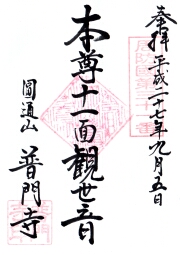 奉拝 平成二十七年九月五日
本尊十一面観世音
圓通山 普門寺